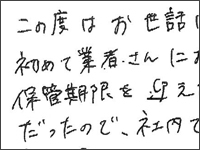 この度はお世話に
初めて業者さんにお
保管期限を迎え
だったので、社内で